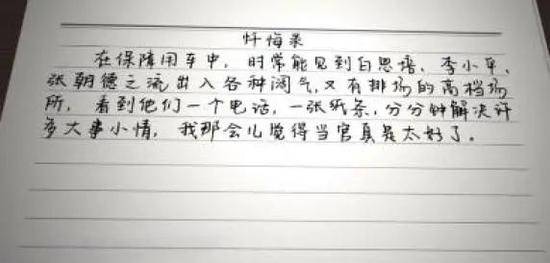 忏悔录
在保障用车中，时常能见到白思语、李小平、
张朝德之流出入各种阔气，又有排场的高档场
所，看到他们一个电话，一张纸条，分分钟解决许
多大事小情，我那会儿觉得当官真是太好了。